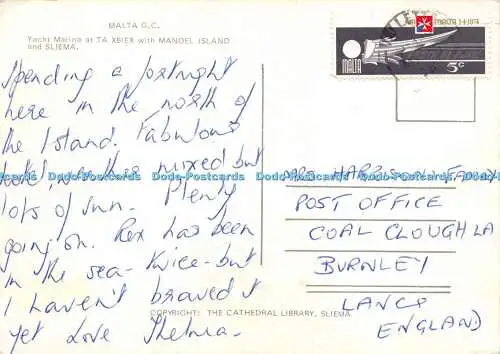 MALTA G.C.
Yacht Marina at TA XBIEX with MANOEL ISLAND
and SLIEMA.
Spending a fortnight
here in the north of
the Island. Fabulous
hotel, weather mixed but
lots of sun. Plenty
going on. Rex has been
in the sea - twice - but
I haven't braved it
yet Love Thelma.
MALTA 1-4-1974
MALTA
5c
HARRIS FAMILY
POST OFFICE
COAL CLOUGH LA
BURNLEY
LANCS
ENGLAND
COPYRIGHT: THE CATHEDRAL LIBRARY, SLIEMA.
Dodo-Postcards Dodo-Postcards Dodo-Postcards Dodo-Postcards Dodo-Postcards